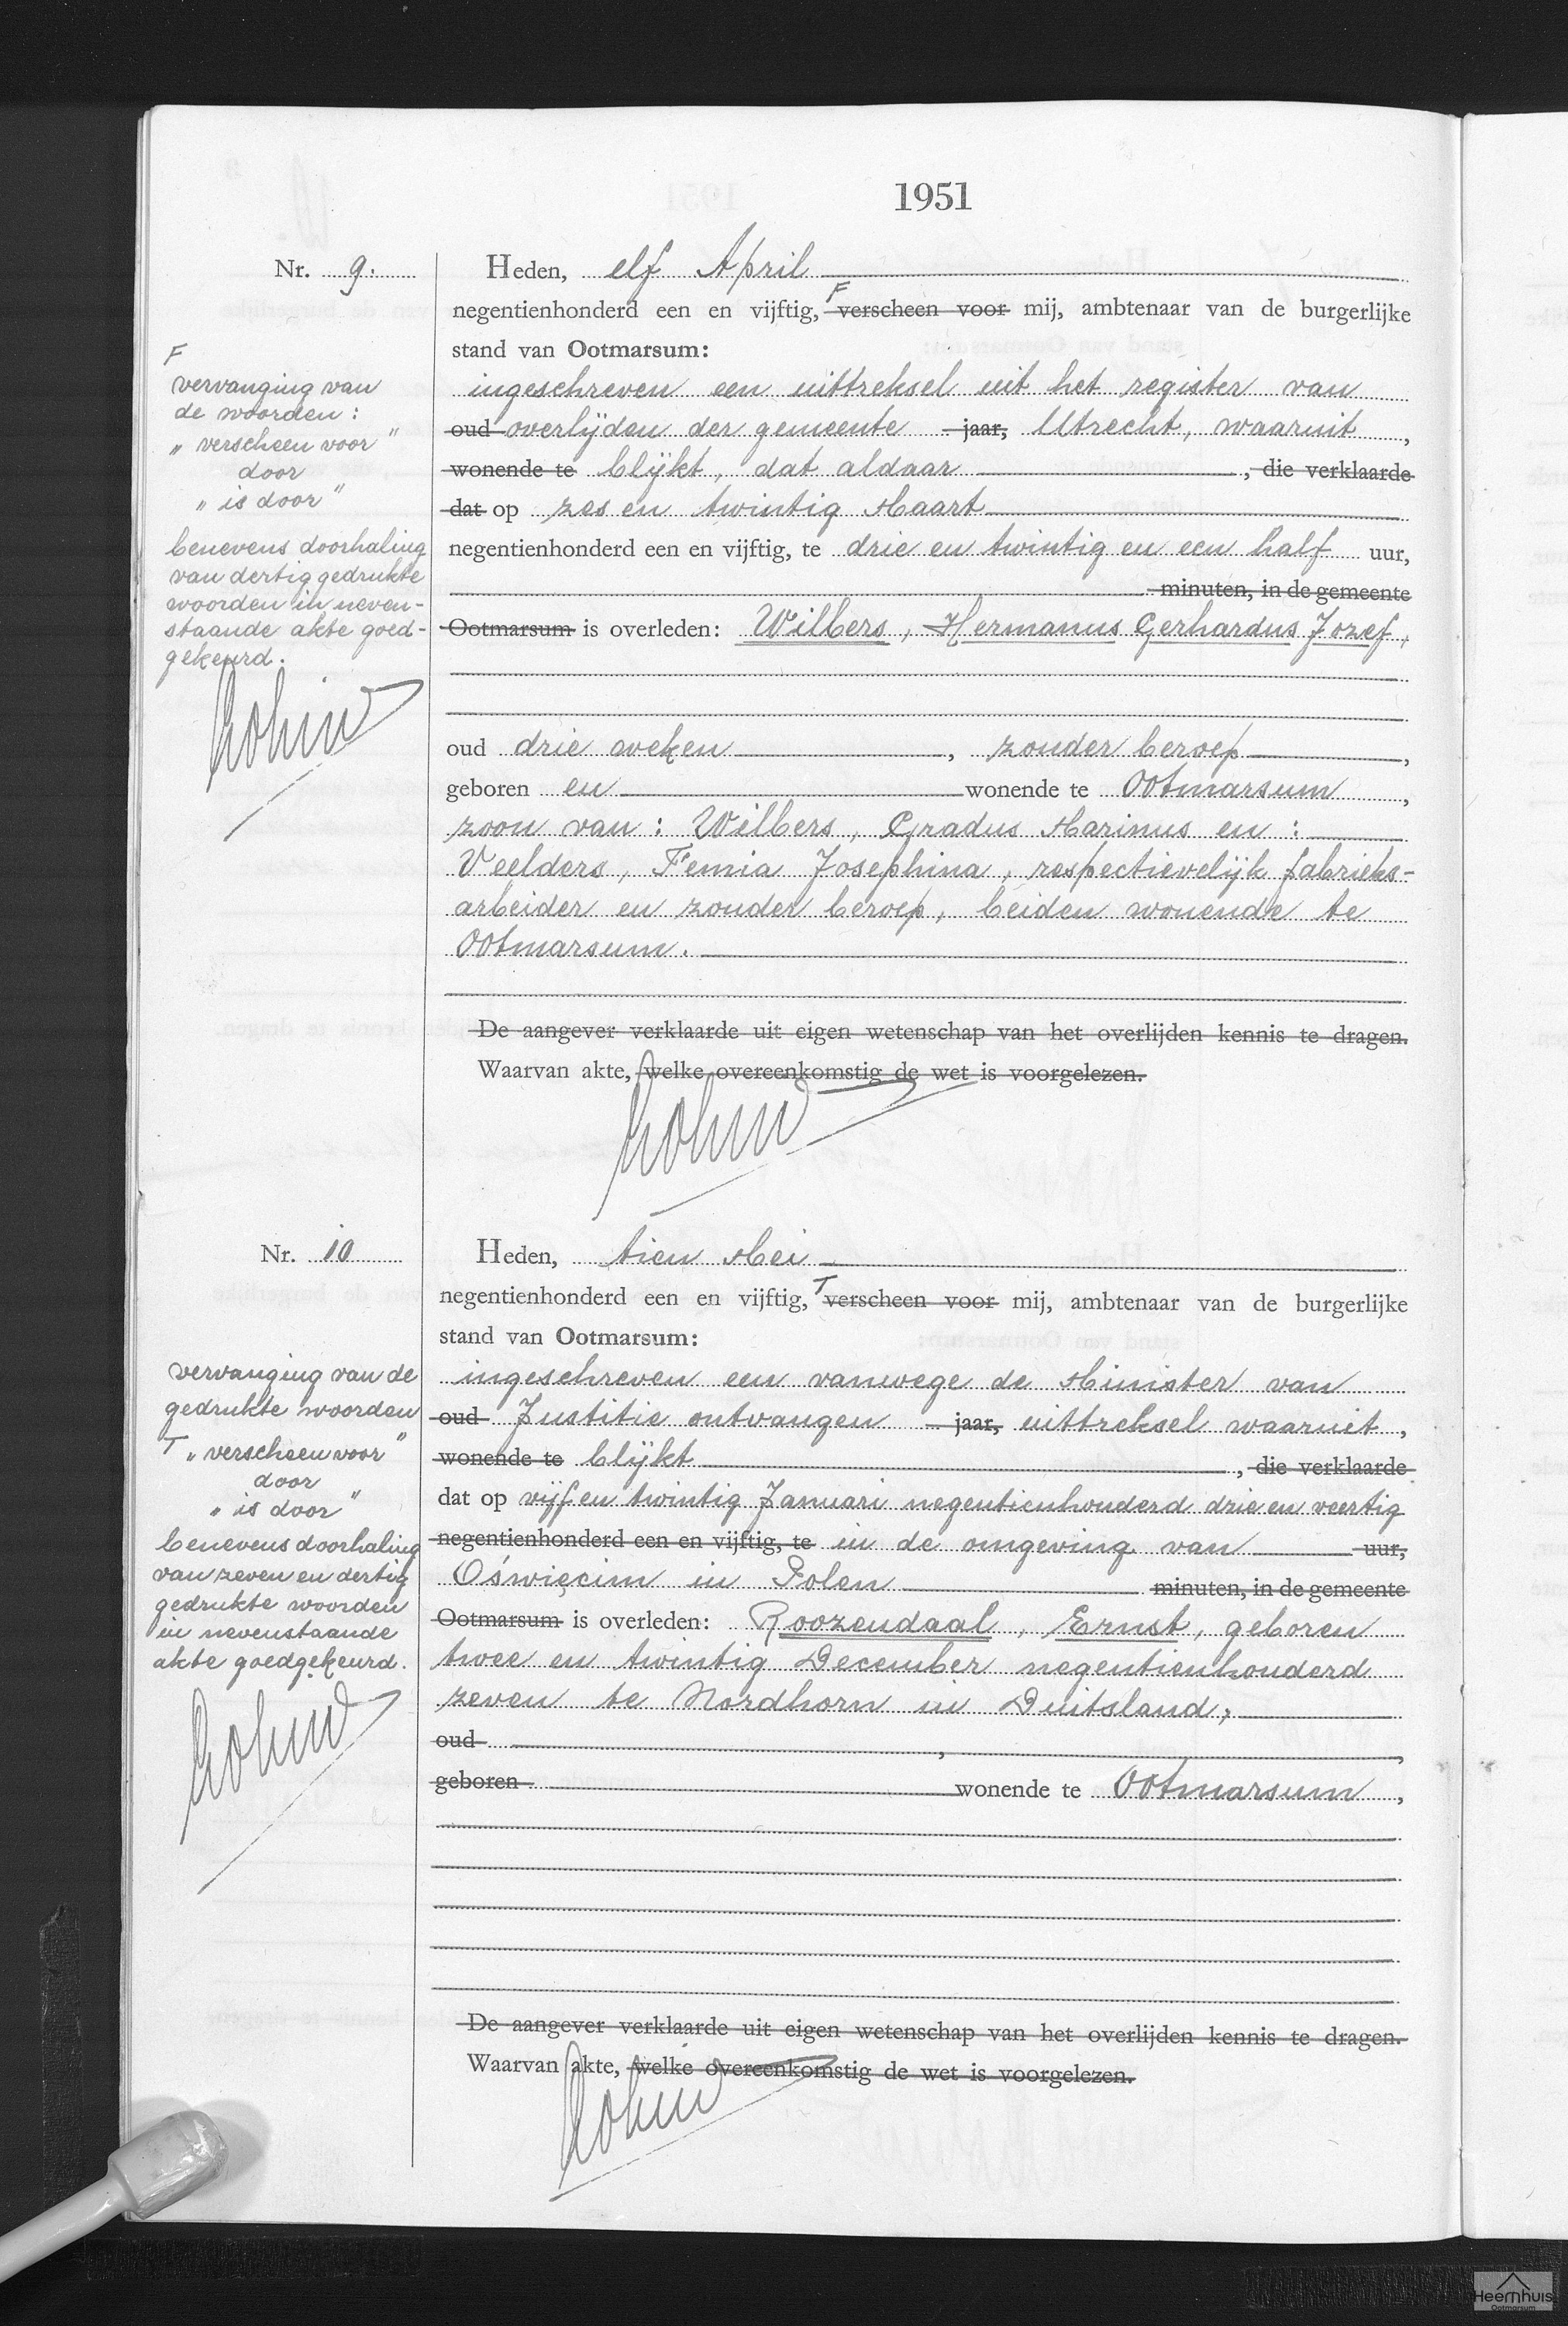 1951
Nr. 9.
Heden, elf April
negentienhonderd een en vijftig, F verscheen voor mij, ambtenaar van de burgerlijke
stand van Ootmarsum:
ingeschreven een uittreksel uit het register van
oud overlijden der gemeente jaar, Utrecht, waaruit,
wonende te blijkt, dat aldaar, die verklaarde
dat op zes en twintig Maart
negentienhonderd een en vijftig, te drie en twintig en een half uur,
minuten, in de gemeente
Ootmarsum is overleden: Wilbers, Hermanus Gerhardus Jozef,
oud drie weken, zonder beroep,
geboren en wonende te Ootmarsum,
zoon van: Wilbers, Gradus Marinus en:
Veelders, Femia Josephina, respectievelijk fabrieks-
arbeider en zonder beroep, beiden wonende te
Ootmarsum.
De aangever verklaarde uit eigen wetenschap van het overlijden kennis te dragen.
Waarvan akte, welke overeenkomstig de wet is voorgelezen.
F
vervanging van
de woorden:
„verscheen voor"
door
„is door"
benevens doorhaling
van dertig gedrukte
woorden in neven-
staande akte goed-
gekeurd.
Nr. 10
Heden, tien Mei
negentienhonderd een en vijftig, T verscheen voor mij, ambtenaar van de burgerlijke
stand van Ootmarsum:
ingeschreven een vanwege de Minister van
oud Justitie ontvangen jaar, uittreksel waaruit,
wonende te blijkt, die verklaarde
dat op vijf en twintig Januari negentienhonderd drie en veertig
negentienhonderd een en vijftig, te in de omgeving van uur,
Oświęcim in Polen minuten, in de gemeente
Ootmarsum is overleden: Roozendaal, Ernst, geboren
twee en twintig December negentienhonderd
zeven te Nordhorn in Duitsland,
oud,
geboren wonende te Ootmarsum,
De aangever verklaarde uit eigen wetenschap van het overlijden kennis te dragen.
Waarvan akte, welke overeenkomstig de wet is voorgelezen.
vervanging van de
gedrukte woorden
T „verscheen voor"
door
„is door"
benevens doorhaling
van zeven en dertig
gedrukte woorden
in nevenstaande
akte goedgekeurd.
Heemhuis
Ootmarsum